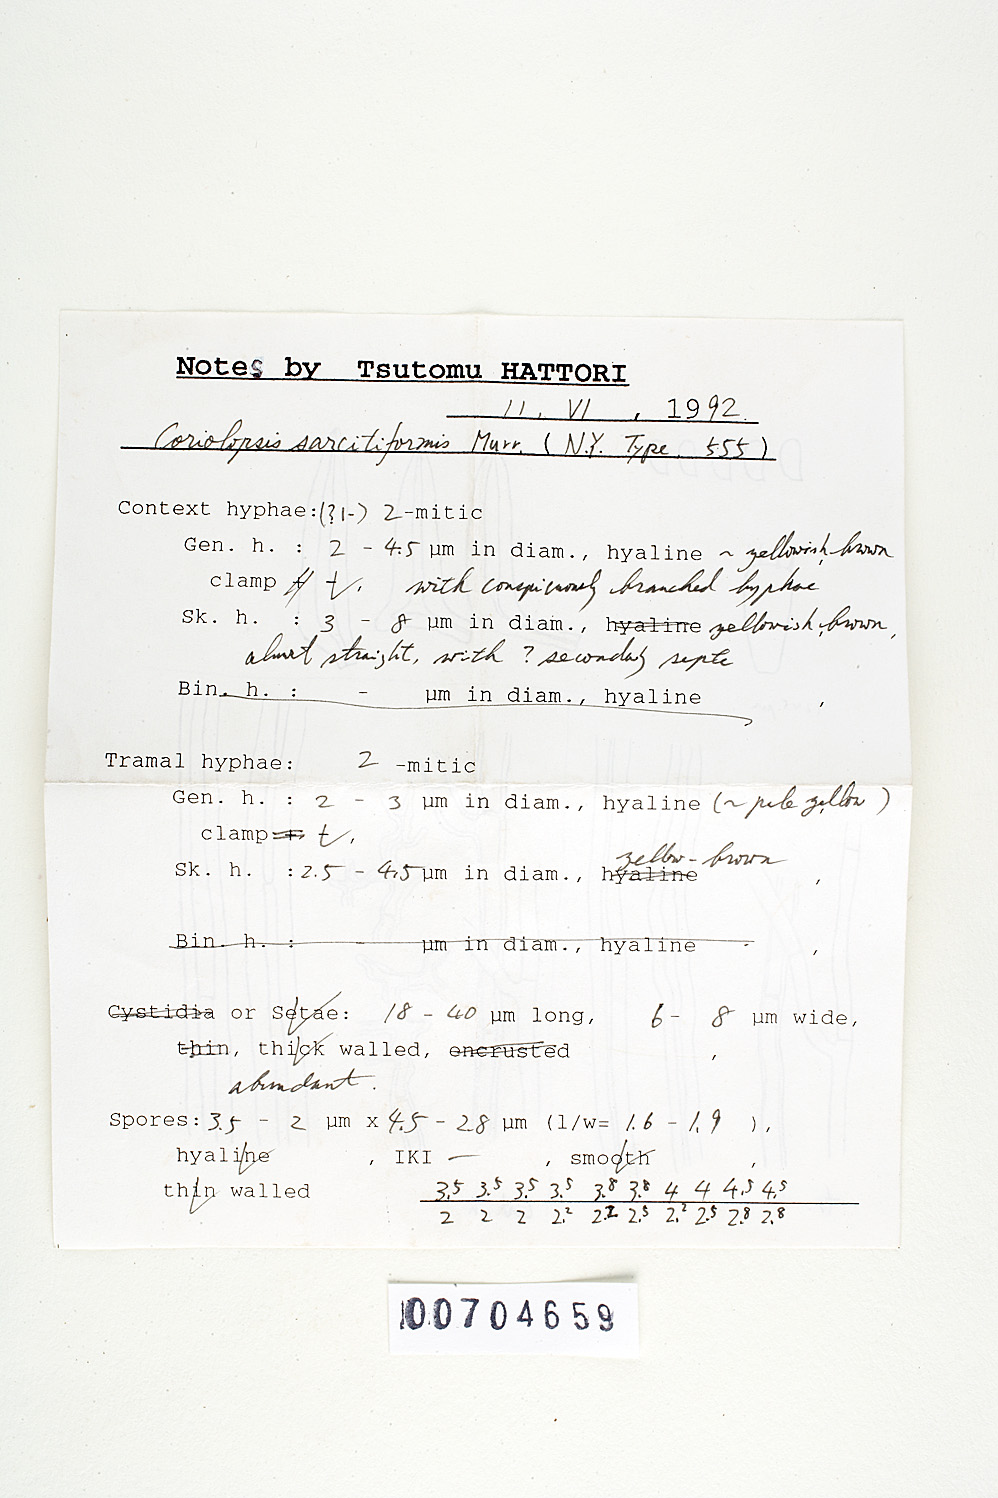 Notes by Tsutomu HATTORI
11. VI , 1992.
Coriolopsis sarcitiformis Murr. (N.Y. Type 555)
Context hyphae:(?1-) 2-mitic
Gen. h. : 2 - 4.5 µm in diam., hyaline ~ yellowish brown
clamp +, with conspicuously branched hyphae
Sk. h. : 3 - 8 µm in diam., hyaline yellowish brown,
almost straight, with ? secondary septe
Bin. h. : - µm in diam., hyaline ,
Tramal hyphae: 2 -mitic
Gen. h. : 2 - 3 µm in diam., hyaline (~ pale yellow)
clamp ± +,
yellow-brown
Sk. h. : 2.5 - 4.5 µm in diam., hyaline ,
Bin. h. : - µm in diam., hyaline ,
Cystidia or Setae: 18 - 40 µm long, 6 - 8 µm wide,
thin, thick walled, encrusted ,
abundant.
Spores: 3.5 - 2 µm x 4.5 - 2.8 µm (l/w= 1.6 - 1.9 ),
hyaline , IKI — , smooth ,
thin walled
3.5 3.5 3.5 3.5 3.8 3.8 4 4 4.5 4.5
2 2 2 2.2 2.2 2.5 2.2 2.5 2.8 2.8
00704659